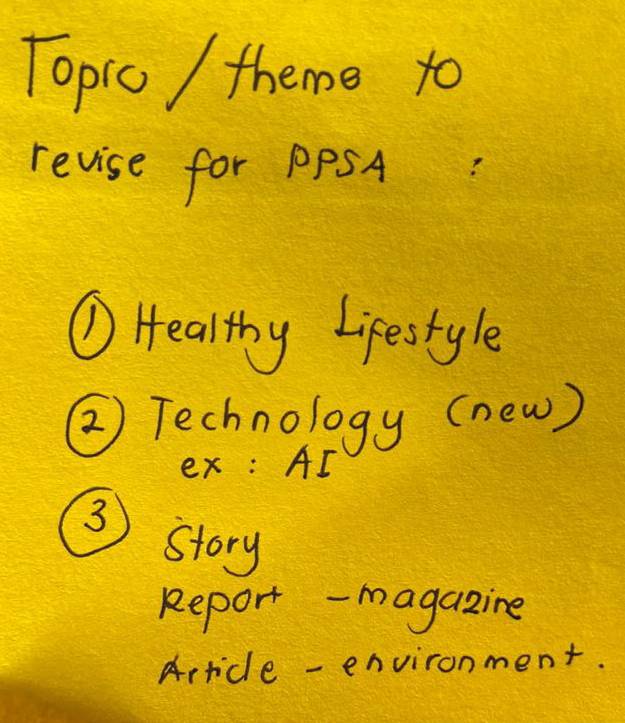 Topic / theme to
revise for PPSA :
① Healthy Lifestyle
② Technology (new)
ex : AI
③ Story
Report - magazine
Article - environment.